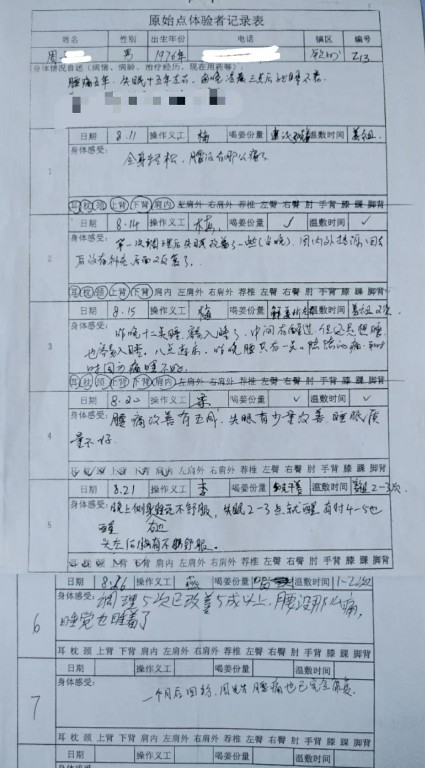 原始点体验者记录表
姓名 性别 出生年份 电话 镇区 编号
周 男 1976年 213
身体情况自述（病情、病龄、治疗经历、现在用药等）
腰痛五年，失眠十五年左右，
日期 8.11 操作义工 梅 喝姜份量 温敷时间
身体感受：
1
全身轻松，腰没有那么痛了
耳 枕 颈 上背 下背 肩内 左肩外 右肩外 荐椎 左臀 右臀 肘 手背 膝 踝 脚背
日期 8.14 操作义工 梅 喝姜份量 ✓ 温敷时间 ✓
身体感受：
2
第一次调理后失眠改善了一些
耳 枕 颈 上背 下背 肩内 左肩外 右肩外 荐椎 左臀 右臀 肘 手背 膝 踝 脚背
日期 8.15 操作义工 梅 喝姜份量 温敷时间
身体感受：
3
昨晚十二点睡，容易入睡了，中间有醒过，但还是想睡
也容易入睡。八点起床，昨晚腰只有一点
耳 枕 颈 上背 下背 肩内 左肩外 右肩外 荐椎 左臀 右臀 肘 手背 膝 踝 脚背
日期 8.20 操作义工 李 喝姜份量 ✓ 温敷时间 ✓
身体感受：
4
腰痛改善有五成，失眠有少量改善 睡眠质
量不好
耳 枕 颈 上背 下背 肩内 左肩外 右肩外 荐椎 左臀 右臀 肘 手背 膝 踝 脚背
日期 8.21 操作义工 李 喝姜份量 温敷时间 2-3次
身体感受：
5
晚上侧身睡不舒服，失眠2-3点就醒，有时4-5也
醒
耳 枕 颈 上背 下背 肩内 左肩外 右肩外 荐椎 左臀 右臀 肘 手背 膝 踝 脚背
日期 8.26 操作义工 喝姜份量 温敷时间 1-2次
身体感受：
6
调理5次已改善5成以上，腰没那么痛，
睡觉也睡着了
耳 枕 颈 上背 下背 肩内 左肩外 右肩外 荐椎 左臀 右臀 肘 手背 膝 踝 脚背
日期 操作义工 喝姜份量 温敷时间
身体感受：
7
一个月后回访，周先生腰痛也已完全康复
耳 枕 颈 上背 下背 肩内 左肩外 右肩外 荐椎 左臀 右臀 肘 手背 膝 踝 脚背
日期 操作义工 喝姜份量 温敷时间